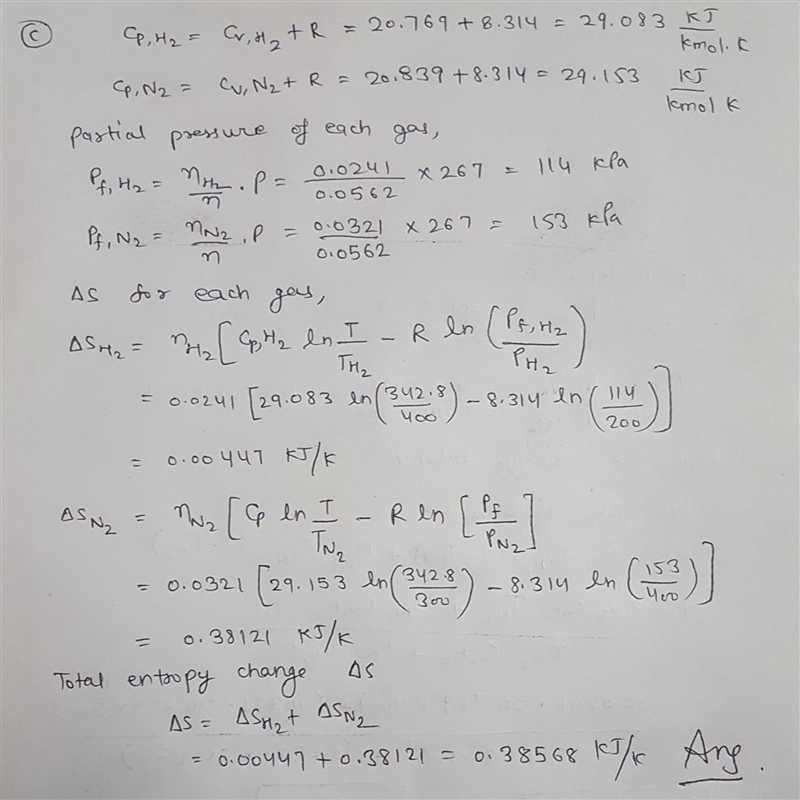 (c) Cp,H2 = Cv,H2 + R = 20.769 + 8.314 = 29.083 KJ/kmol.K
Cp,N2 = Cv,N2 + R = 20.839 + 8.314 = 29.153 KJ/kmol K
Partial pressure of each gas,
Pf,H2 = nH2/n . P = 0.0241/0.0562 × 267 = 114 kPa
Pf,N2 = nN2/n . P = 0.0321/0.0562 × 267 = 153 kPa
ΔS for each gas,
ΔSH2 = nH2 [Cp,H2 ln T/TH2 − R ln (Pf,H2/PH2)
= 0.0241 [29.083 ln(342.8/400) − 8.314 ln (114/200)]
= 0.00447 KJ/K
ΔSN2 = nN2 [Cp ln T/TN2 − R ln [Pf/PN2]
= 0.0321 [29.153 ln(342.8/300) − 8.314 ln (153/400)]
= 0.38121 KJ/K
Total entropy change ΔS
ΔS = ΔSH2 + ΔSN2
= 0.00447 + 0.38121 = 0.38568 KJ/K Ans.